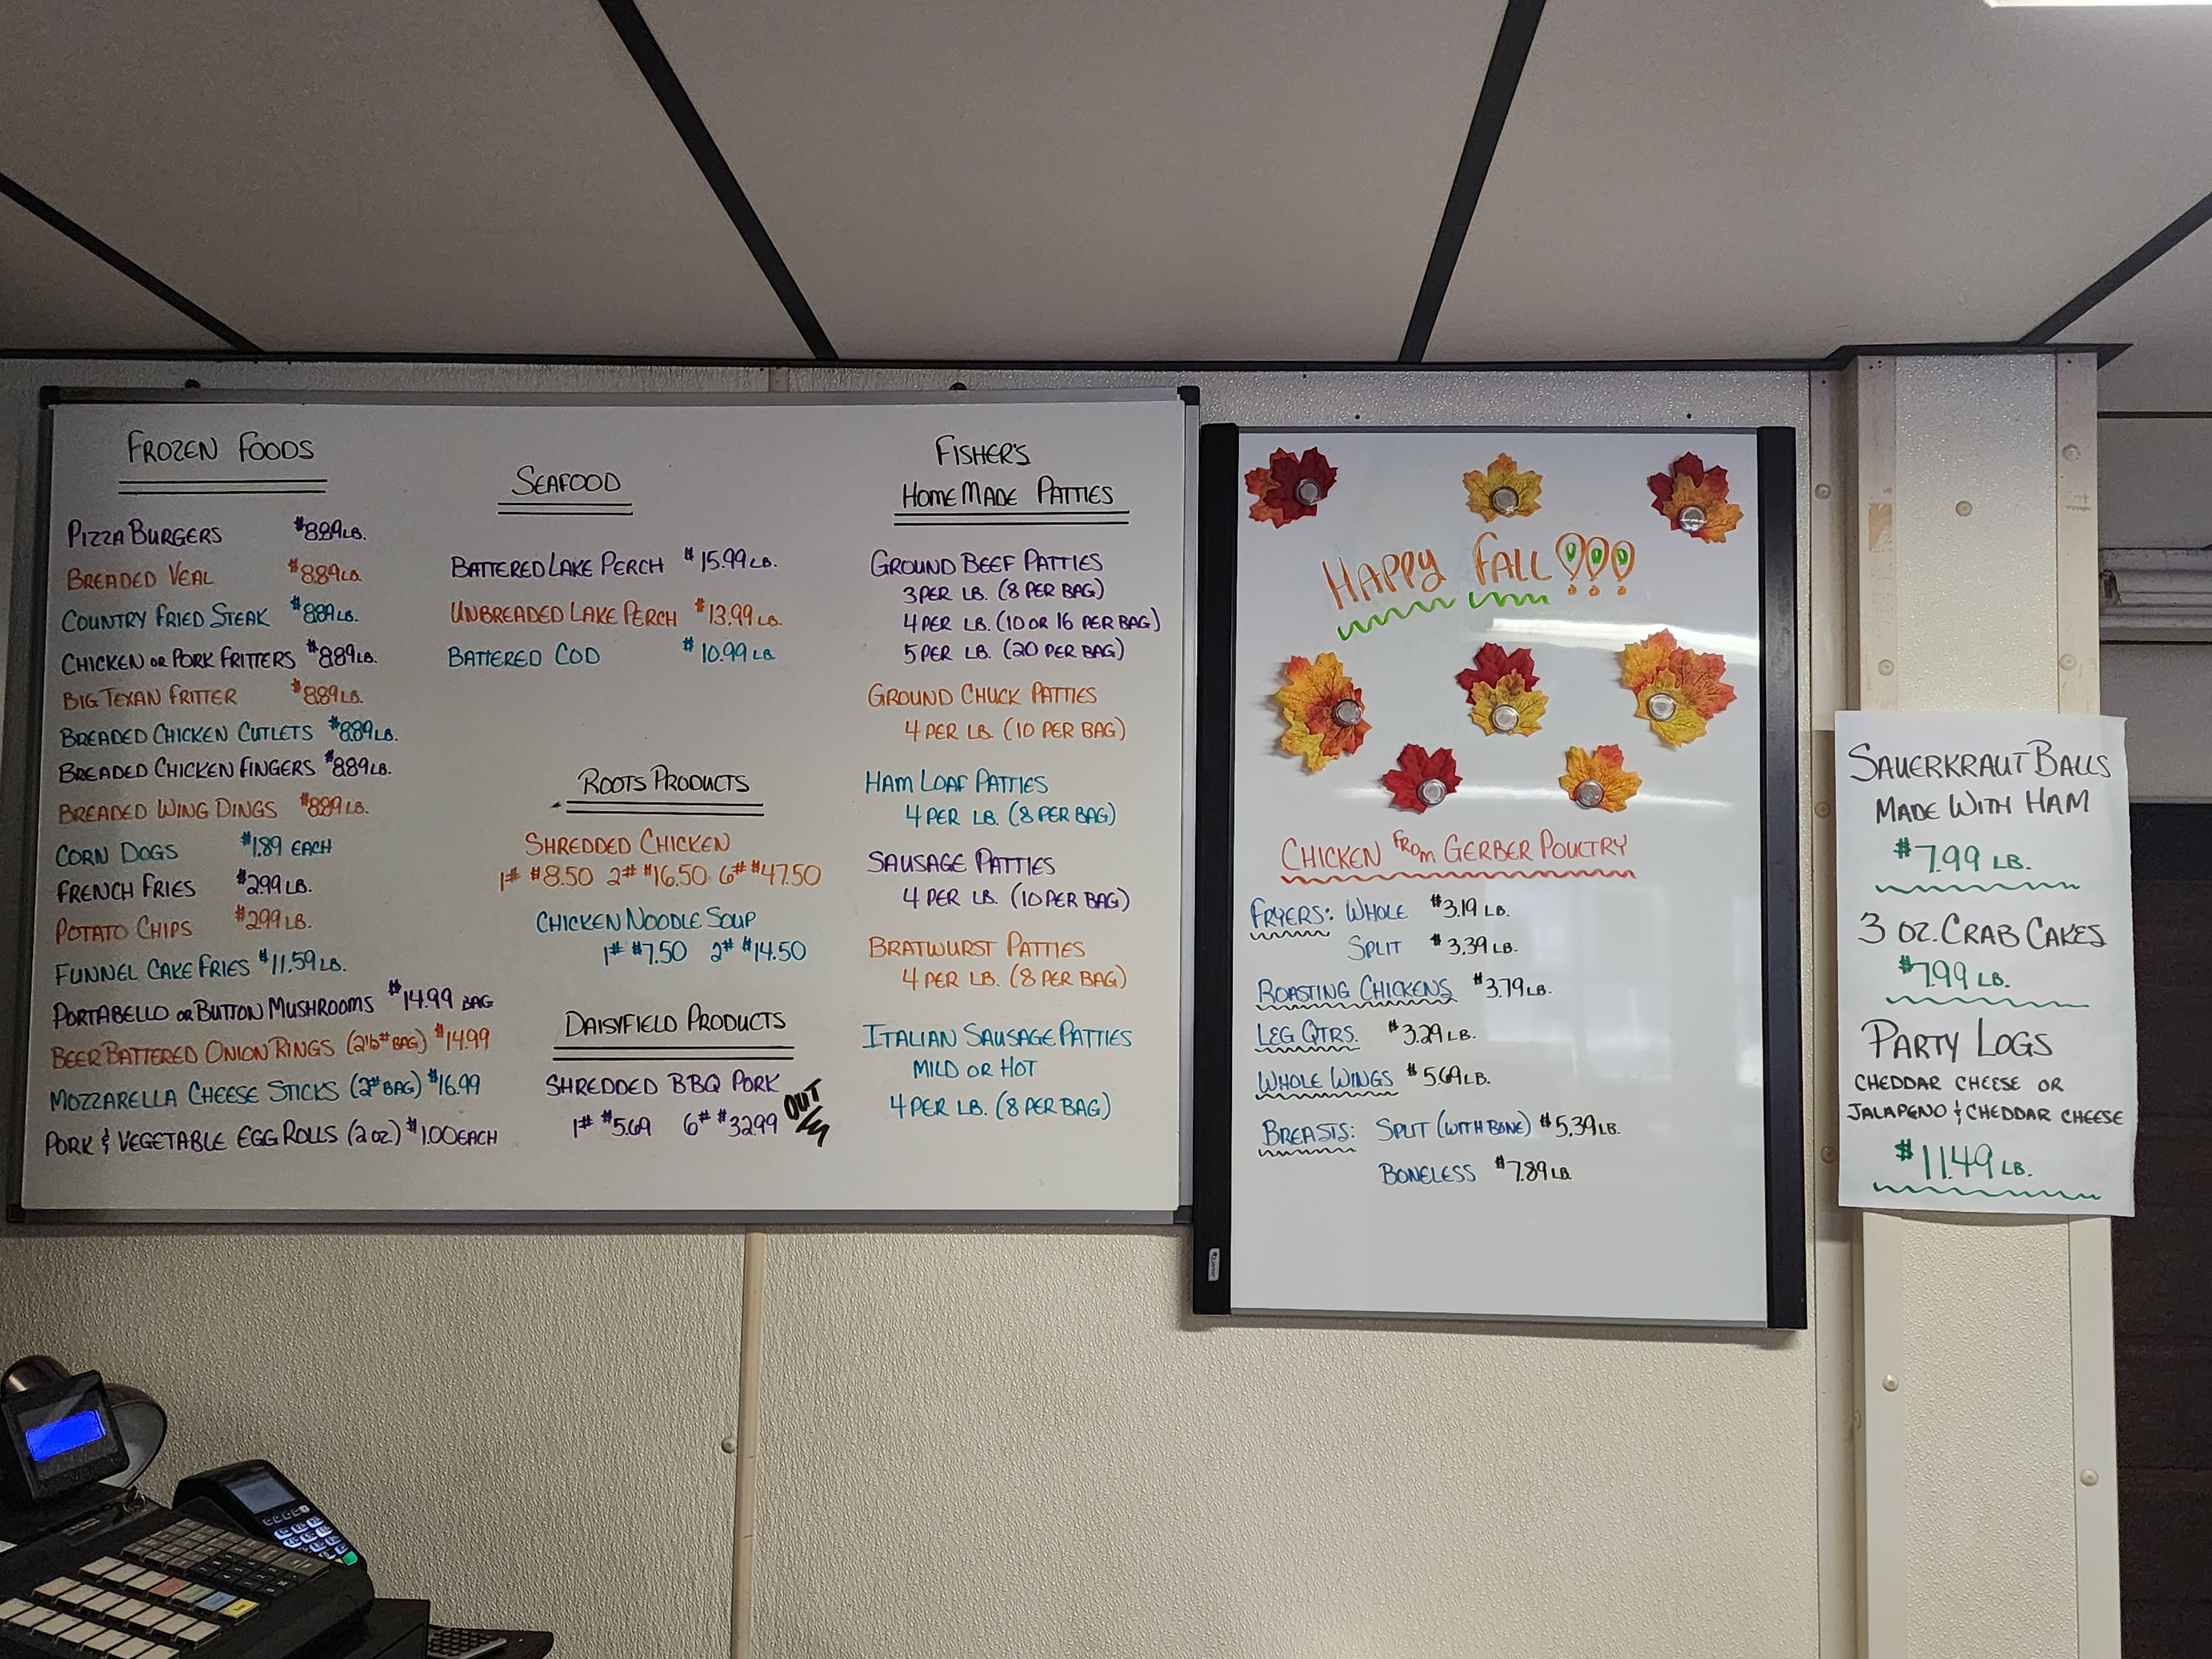 FROZEN FOODS
PIZZA BURGERS $8.89 LB.
BREADED VEAL $8.89 LB.
COUNTRY FRIED STEAK $8.89 LB.
CHICKEN OR PORK FRITTERS $8.89 LB.
BIG TEXAN FRITTER $8.89 LB.
BREADED CHICKEN CUTLETS $8.89 LB.
BREADED CHICKEN FINGERS $8.89 LB.
BREADED WING DINGS $8.89 LB.
CORN DOGS $1.89 EACH
FRENCH FRIES $2.99 LB.
POTATO CHIPS $2.99 LB.
FUNNEL CAKE FRIES $11.59 LB.
PORTABELLO OR BUTTON MUSHROOMS $14.99 BAG
BEER BATTERED ONION RINGS (2½# BAG) $14.99
MOZZARELLA CHEESE STICKS (2# BAG) $16.99
PORK & VEGETABLE EGG ROLLS (2 OZ.) $1.00 EACH
SEAFOOD
BATTERED LAKE PERCH $15.99 LB.
UNBREADED LAKE PERCH $13.99 LB.
BATTERED COD $10.99 LB.
ROOTS PRODUCTS
SHREDDED CHICKEN
1# $8.50 2# $16.50 6# $47.50
CHICKEN NOODLE SOUP
1# $7.50 2# $14.50
DAISYFIELD PRODUCTS
SHREDDED BBQ PORK
1# $5.69 6# $32.99 OUT
FISHER'S
HOMEMADE PATTIES
GROUND BEEF PATTIES
3 PER LB. (8 PER BAG)
4 PER LB. (10 OR 16 PER BAG)
5 PER LB. (20 PER BAG)
GROUND CHUCK PATTIES
4 PER LB. (10 PER BAG)
HAM LOAF PATTIES
4 PER LB. (8 PER BAG)
SAUSAGE PATTIES
4 PER LB. (10 PER BAG)
BRATWURST PATTIES
4 PER LB. (8 PER BAG)
ITALIAN SAUSAGE PATTIES
MILD OR HOT
4 PER LB. (8 PER BAG)
HAPPY FALL!!!
CHICKEN FROM GERBER POULTRY
FRYERS: WHOLE $3.19 LB.
SPLIT $3.39 LB.
ROASTING CHICKENS $3.79 LB.
LEG QTRS. $3.29 LB.
WHOLE WINGS $5.69 LB.
BREASTS: SPLIT (WITH BONE) $5.39 LB.
BONELESS $7.89 LB.
SAUERKRAUT BALLS
MADE WITH HAM
$7.99 LB.
3 OZ. CRAB CAKES
$7.99 LB.
PARTY LOGS
CHEDDAR CHEESE OR
JALAPENO & CHEDDAR CHEESE
$11.49 LB.